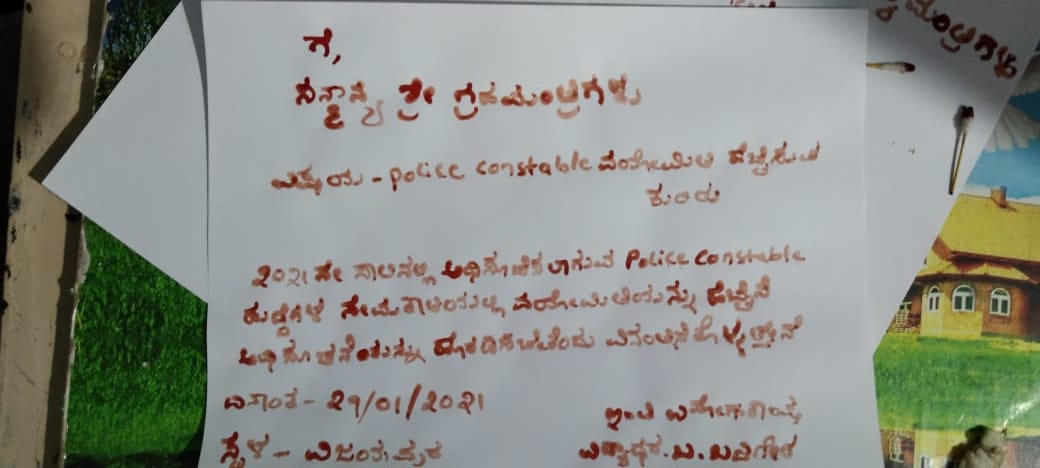 ಮಂತ್ರಿಗಳು
ಗೆ,
ಸನ್ಮಾನ್ಯ ಶ್ರೀ ಗ್ರಹಮಂತ್ರಿಗಳು
ವಿಷಯ - police constable ವಯೋಮಿತಿ ಹೆಚ್ಚಿಸುವ
ಕುರಿತು
2021 ನೇ ಸಾಲಿನಲ್ಲಿ ಅಧಿಸೂಚಿಸಲಾಗುವ Police Constable
ಹುದ್ದೆಗಳ ನೇಮಕಾತಿಯಲ್ಲಿ ವಯೋಮಿತಿಯನ್ನು ಹೆಚ್ಚಿಸಿ
ಅಧಿಸೂಚನೆಯನ್ನು ಹೊರಡಿಸಬೇಕೆಂದು ವಿನಂತಿಸಿಕೊಳ್ಳುತ್ತೇನೆ
ದಿನಾಂಕ - 29/01/2021
ಇಂತಿ ವಿಶ್ವಾಸಿ
ಸ್ಥಳ - ವಿಜಯಪುರ
ವಿದ್ಯಾಧರ. ಬ. ಬಡಿಗೇರ